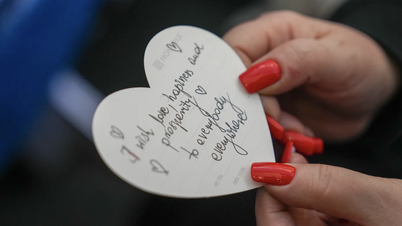 I wish love, happiness and
prosperity
to everybody
everywhere!